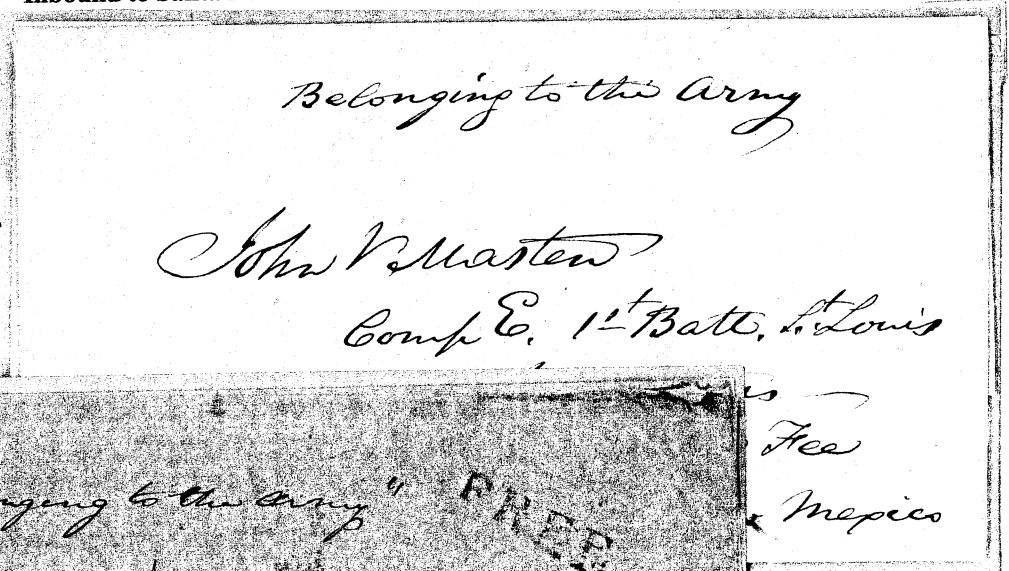 Inbound to
Belonging to the Army
John V. Masten
Comp E. 1st Batt. St. Louis
Fee
Mexico
nging to the Army"
FREE